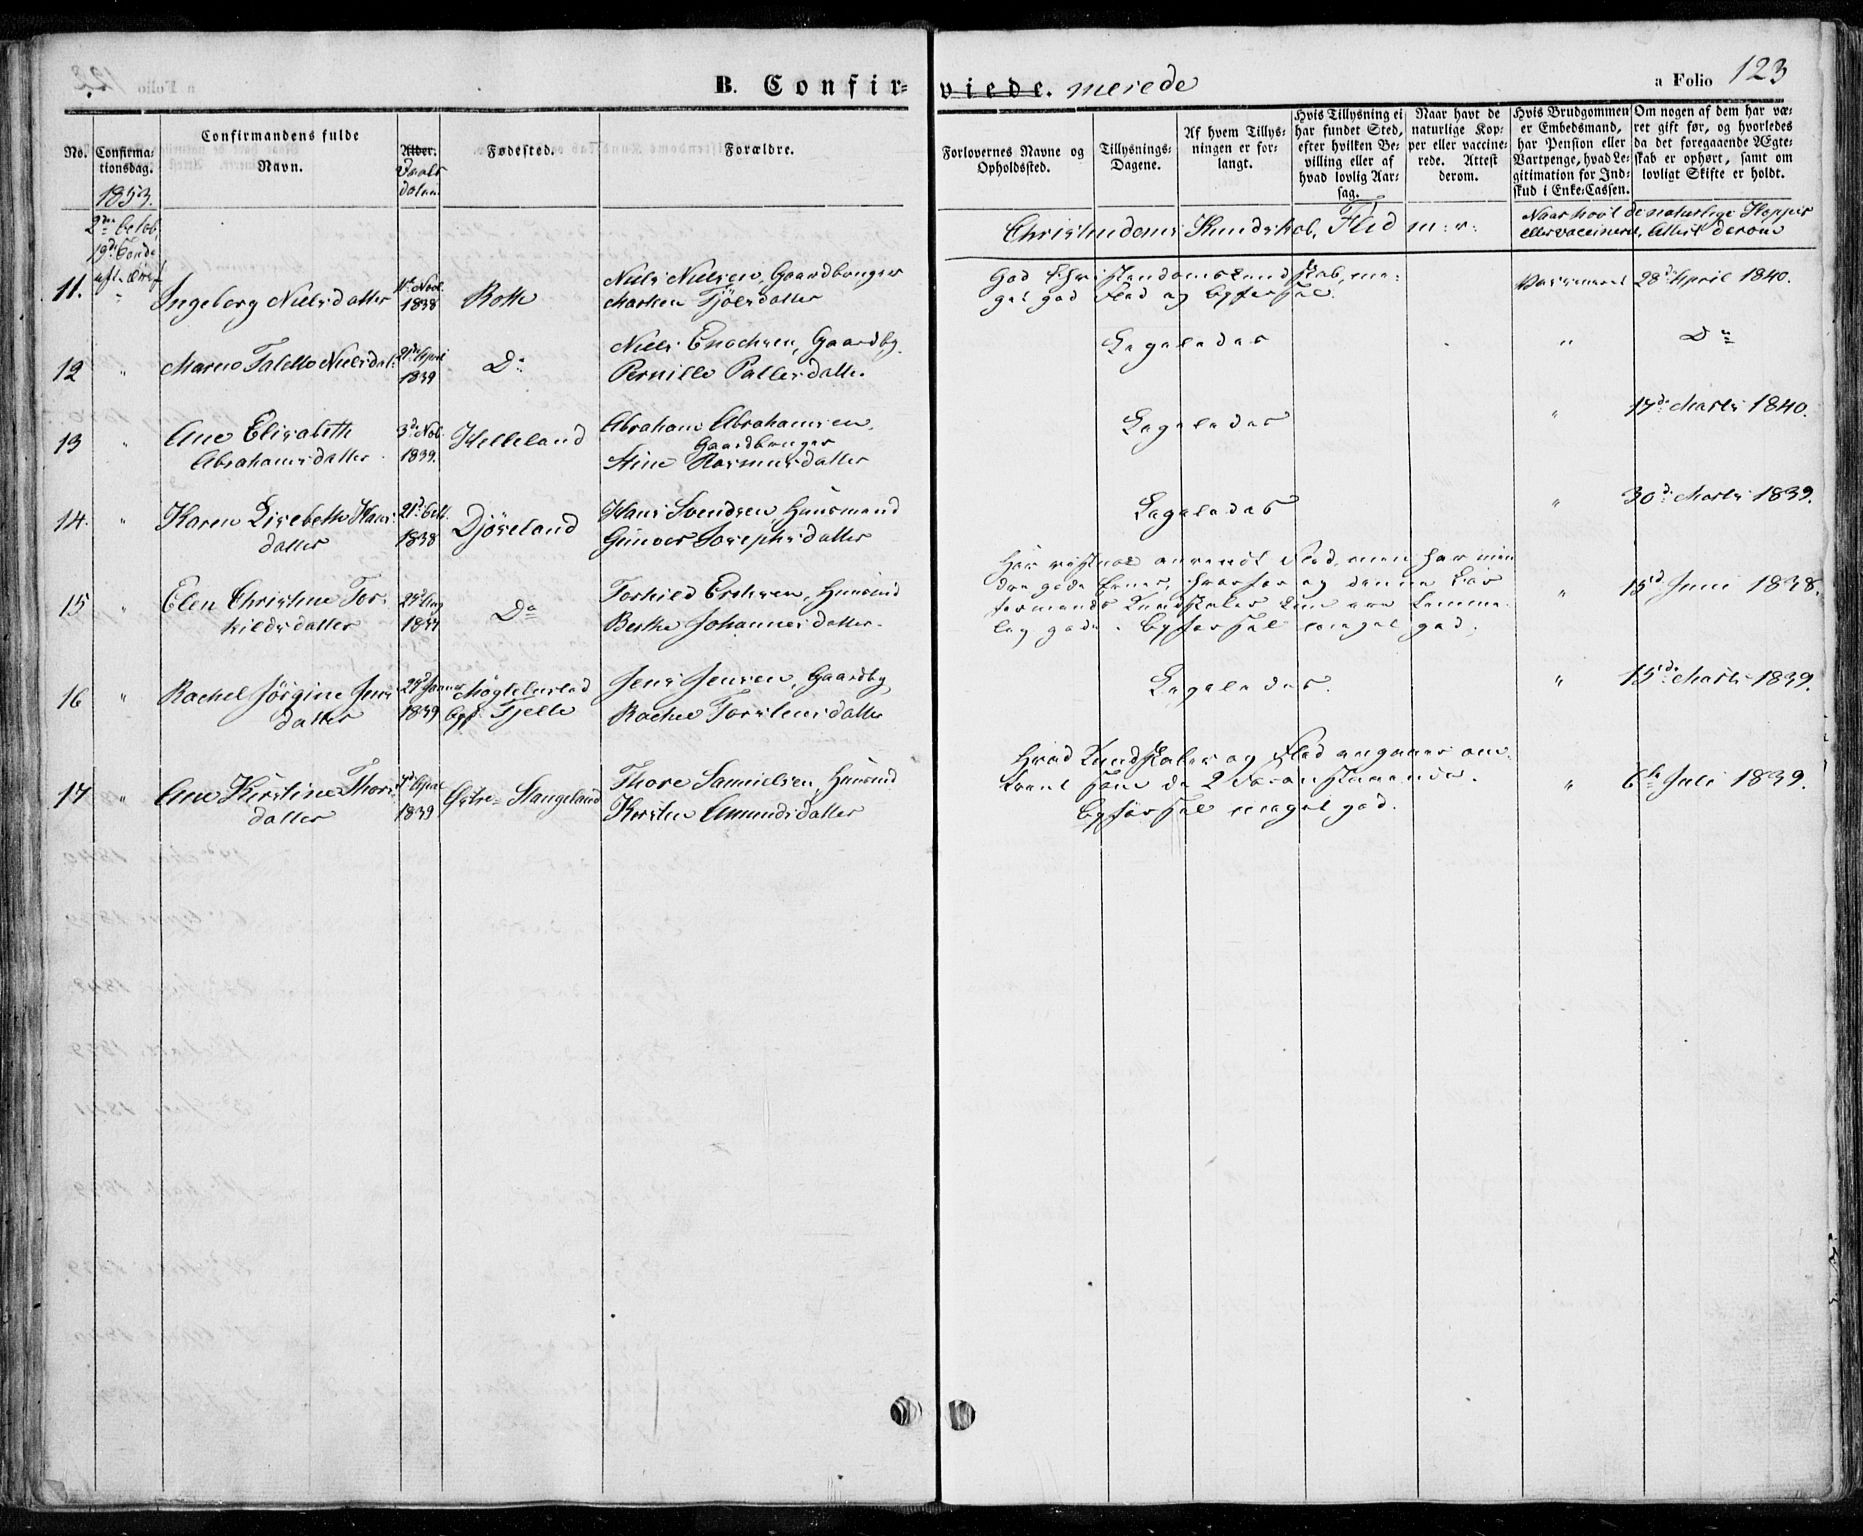 B. Confir-
viede. merede
a Folio 123
No.
Confirma-
tionsdag.
1853.
Confirmandens fulde
Navn.
Alder.
Daabs
datum
Fødested.
Forældre.
Forlovernes Navne og
Opholdssted.
Tillysnings-
Dagene.
Af hvem Tillys-
ningen er for-
langt.
Hvis Tillysning ei
har fundet Sted,
efter hvilken Be-
villing eller af
hvad lovlig Aar-
sag.
Naar havt de
naturlige Kop-
per eller vaccine-
rede. Attest
derom.
Hvis Brudgommen
er Embedsmand,
har Pension eller
Vartpenge, hvad Le-
gitimation for Ind-
skud i Enke-Cassen.
Om nogen af dem har væ-
ret gift før, og hvorledes
da det foregaaende Ægte-
skab er ophørt, samt om
lovligt Skifte er holdt.
2den October
19de Sønd.
Christendoms Kundskab, Flid m: v:
Naar havt de naturlige Kopper
eller vaccineret, Attest derom
11. Ingeborg Nielsdatter
11te Nov.
1838
Rott
Niels Nielsen, Gaardbruger
Marthen Tjølsdatter
God Christendomskundskab, me-
get god Flid og Opførsel.
Vaccineret 28de April 1840.
12 " Maren Nielsdat:
1839
Do
Niels Enochsen, Gaardby.
Pernille Pallesdatter
Ligeledes
" Do
13 " Ane Elisabeth
Abrahamsdatter
3de Nov.
1839.
Helleland
Abraham Abrahamsen,
Gaardbruger
Stine Rasmusdatter
Ligeledes
" 17de Marts 1840.
14. " Karen Lisebeth Hans-
datter
21de Oct.
1838
Djøseland
Hans Svendsen Huusmand
Gunvor Josephsdatter
Ligeledes
" 30de Marts 1839.
15 " Elen Christine Tor-
kildsdatter
Do
Torkild Ericksen, Huusmd
Berthe Johannesdatter
Har vistnok anvendt Flid, men har min
dre gode Evner, hvorfor og denne Con
firmands Kundskaber kun ere temme-
lig gode. Opførsel meget god.
" 15de Juni 1838.
16 " Rachel Jørgine Jens-
datter
1839
Møgtebostad
opf. Tjelle
Jens Jensen, Gaardby
Rachel Torstensdatter
Ligeledes.
" 15de Marts 1839.
17 " Ane Kirstine Thors-
datter
1839
Østre Stangeland
Thore Samuelsen, Huusmd
Kirstine Amundsdatter
Hvad Kundskaber og Flid angaaer om-
trent som de 2 Foranstaaende.
Opførsel meget god.
" 6te Juli 1839.